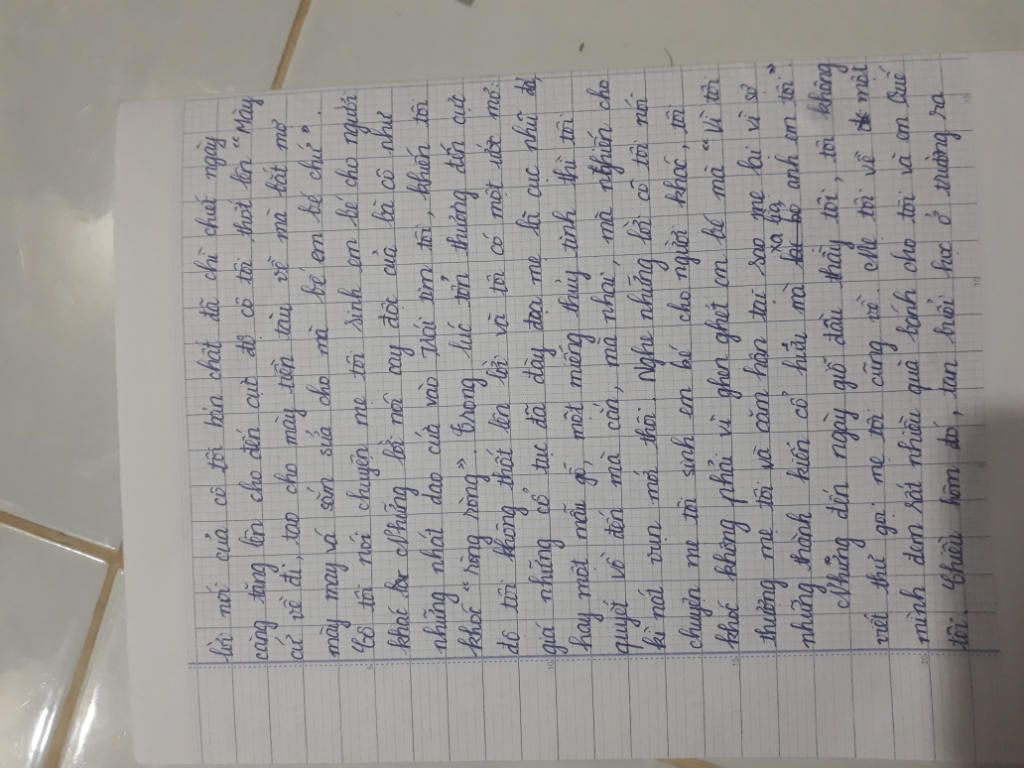 lời nói của cô tôi bén chát tã chì chiế ngày
càng tăng lên cho đến cực độ cô tôi thốt lên "Mày
cứ về đi, tao cho mày tiền tàu về mà bắt mợ
mày may vá sắm sửa cho mà bế em bé chứ".
Cô tôi nói chuyện mẹ tôi sinh em bé cho người
khác Những lời nói cay độc của bà cô như
những nhát dao cứa vào trái tim tôi, khiến tôi
khóc "ròng ròng". Trong lúc tổn thương đến cực
độ tôi không thốt lên lời và tôi có một ước mơ:
giá những cổ tục đã đày đọa mẹ là cục như đá,
hay một mẩu gỗ, một miếng thủy tinh thì tôi
quyết vồ đến mà cắn, mà nhai, mà nghiến cho
kì nát vụn mới thôi. Nghe những lời cô tôi nói
chuyện mẹ tôi sinh em bé cho người khác, tôi
khóc không phải vì ghen ghét em bé mà "vì tôi
thương mẹ tôi và căm hận tại sao mẹ lại vì sợ
những thành kiến cổ hủ mà xa lìa anh em tôi"
Nhưng đến ngày giỗ đầu thầy tôi, tôi không
viết thư gọi mẹ tôi cũng về. Mẹ tôi về một
mình đem rất nhiều quà bánh cho tôi và em Quế
tôi. Chiều hôm đó, tan buổi học ở trường ra